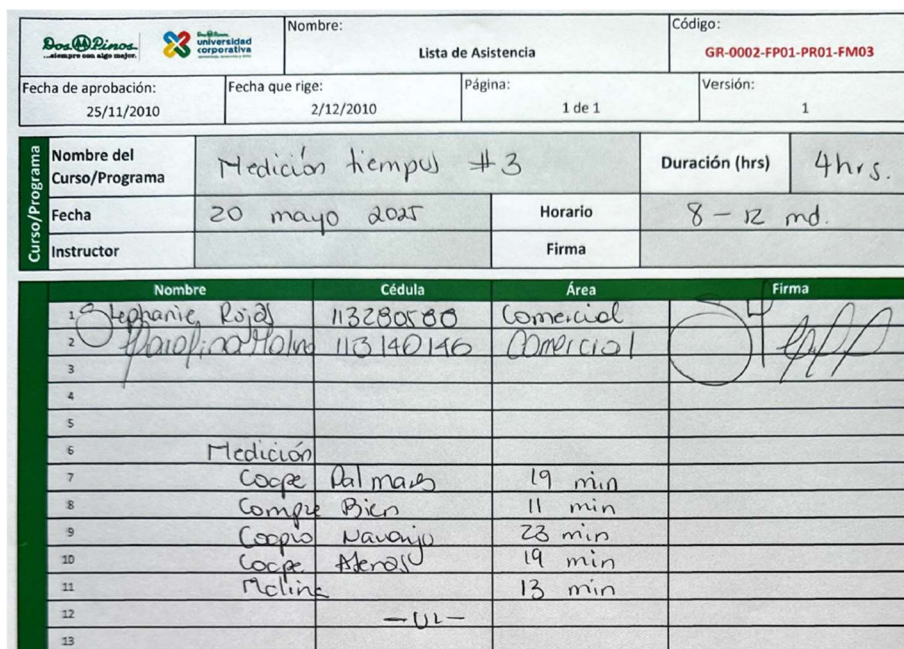 Dos Pinos
...siempre con algo mejor.
Dos Pinos
universidad
corporativa
Nombre:
Lista de Asistencia
Código:
GR-0002-FP01-PR01-FM03
Fecha de aprobación:
25/11/2010
Fecha que rige:
2/12/2010
Página:
1 de 1
Versión:
1
Curso/Programa
Nombre del
Curso/Programa
Medición tiempos #3
Duración (hrs)
4hrs.
Fecha
20 mayo 2025
Horario
8 - 12 md.
Instructor
Firma
Nombre Cédula Área Firma
1 Stephanie Rojas 113280580 Comercial
2 Carolina Molina 113140146 Comercial
3
4
5
6 Medición
7 Coope Palmares 19 min
8 Compre Bien 11 min
9 Coopro Naranjo 23 min
10 Coope Atenas 19 min
11 Molina 13 min
12 -UL-
13